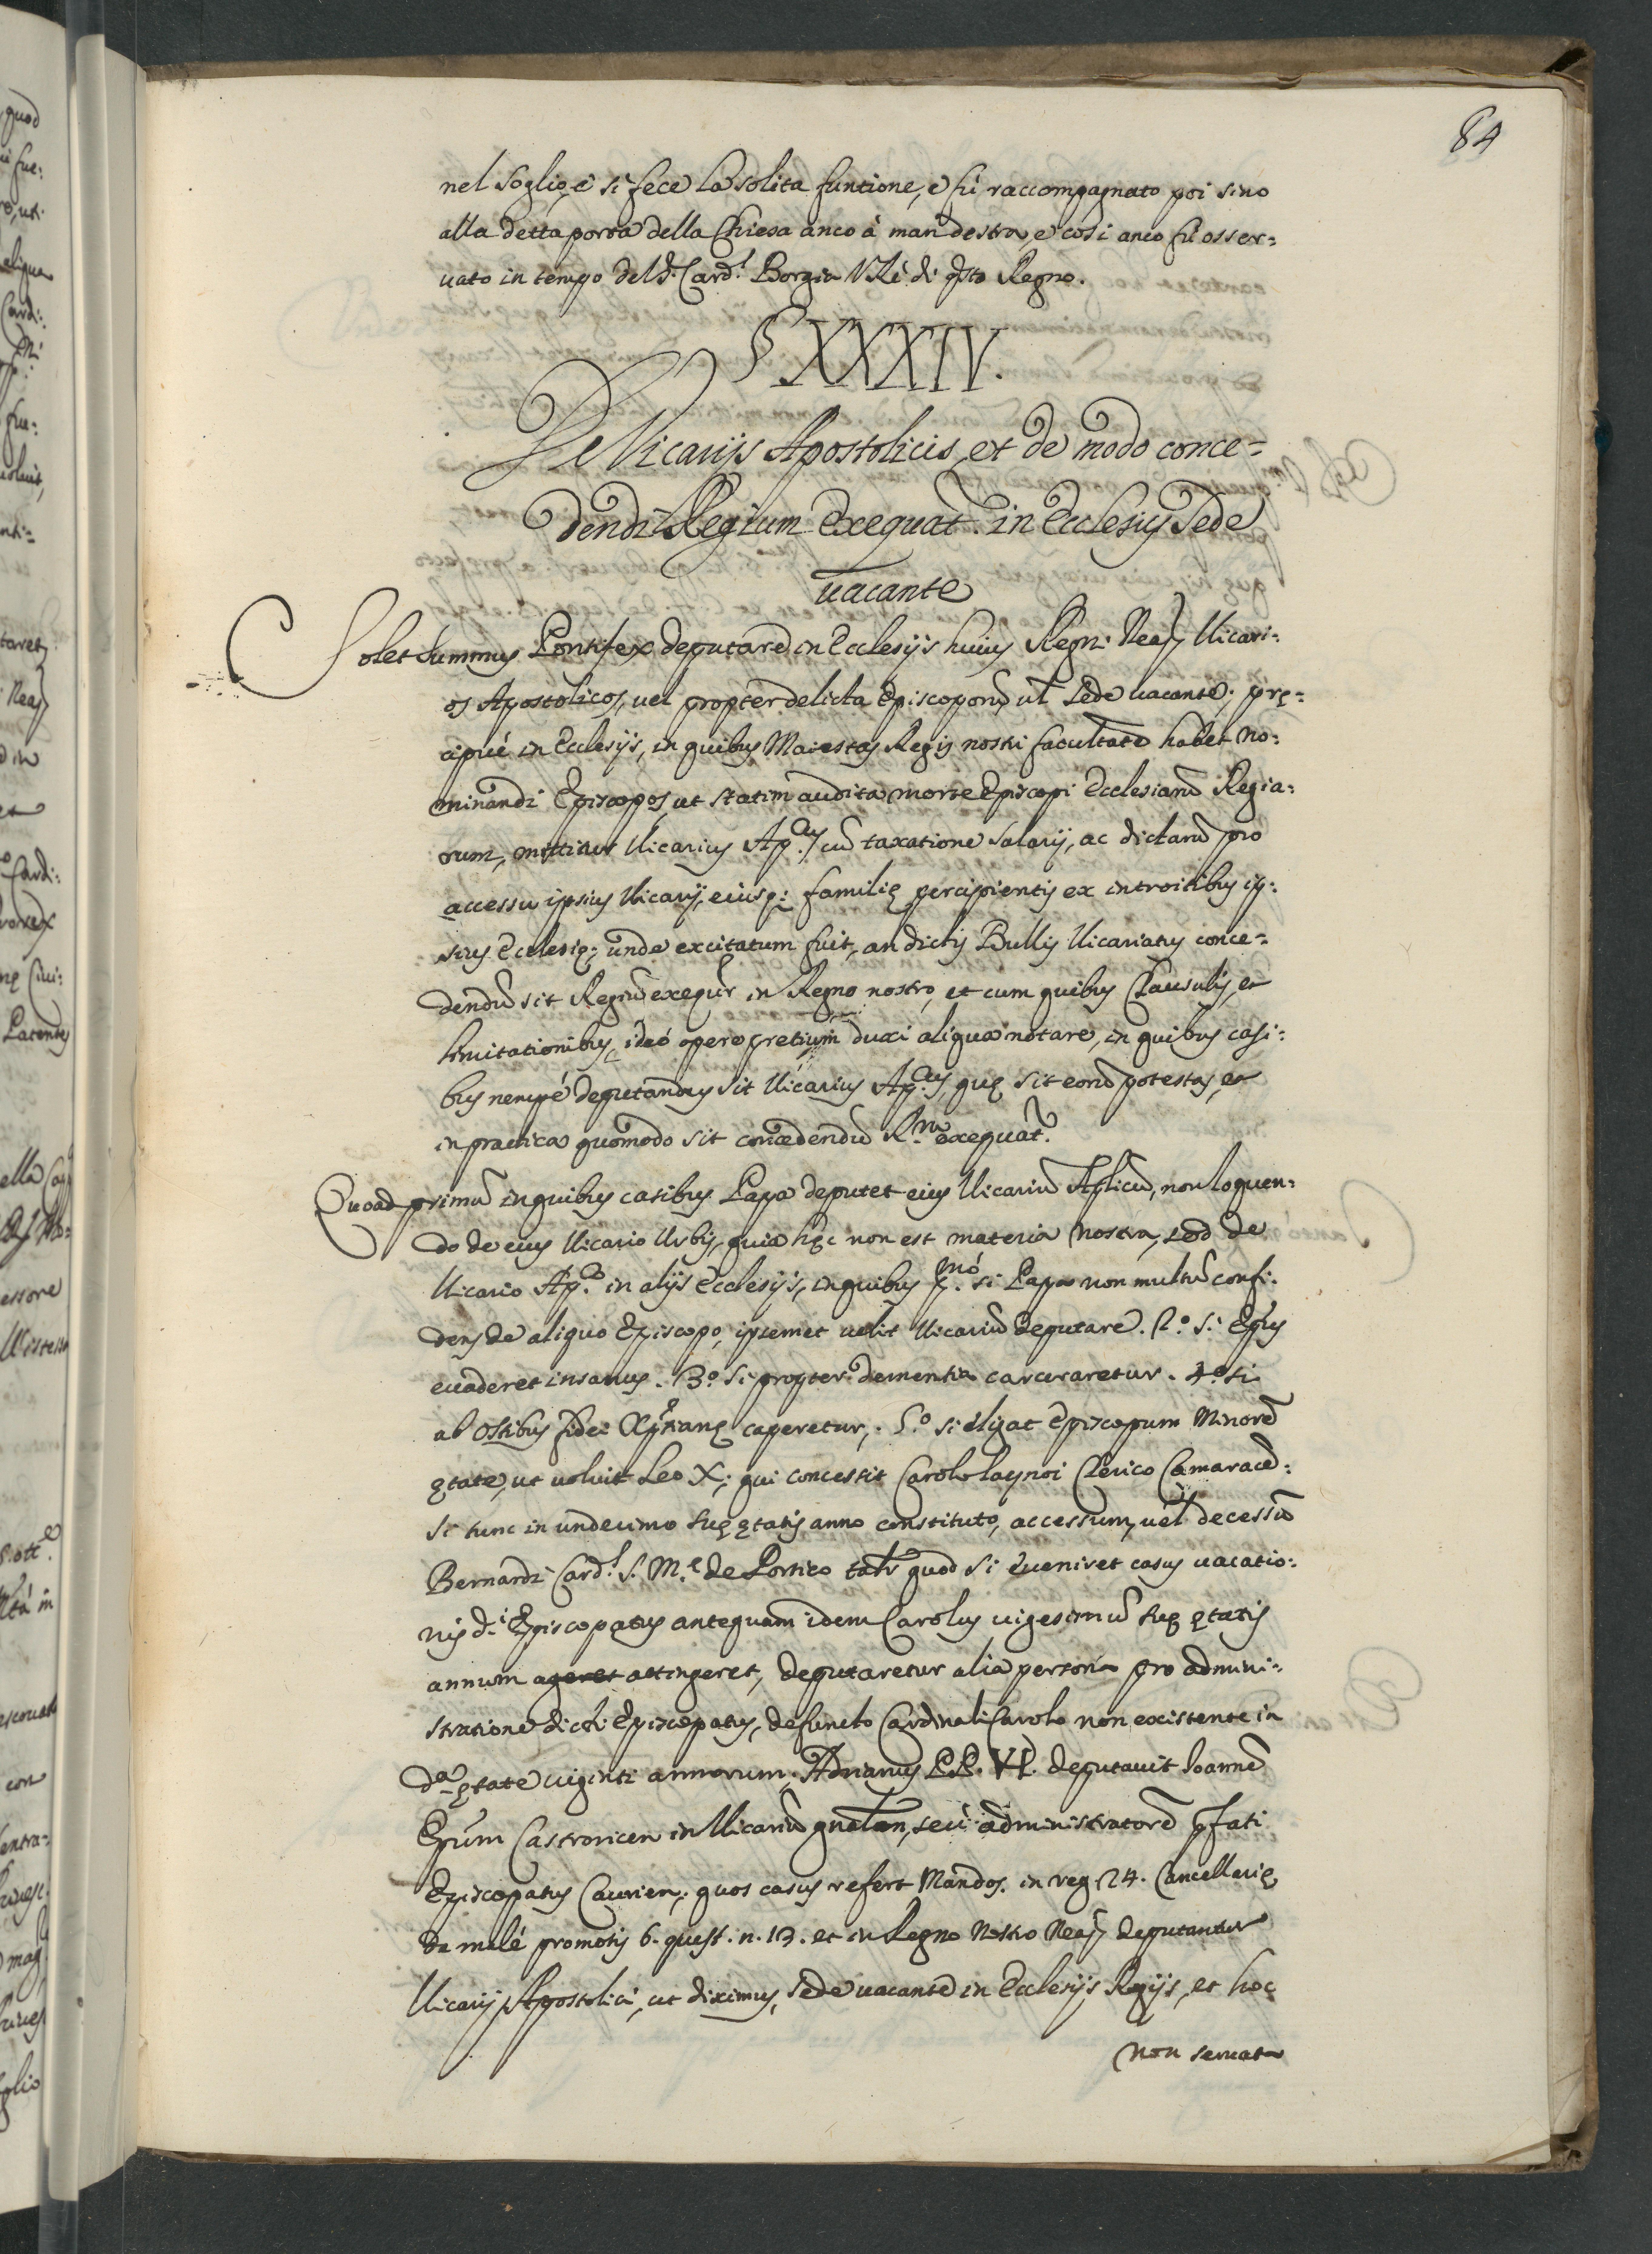 84
nel soglio, e si fece la solita funtione, e fù raccompagnato poi sino
alla detta porta della Chiesa anco à man destra, e così anco fù osser=
uato in tempo del S.r Card.l Borgia V.Rè di q̃sto Regno.
§ XXXIV.
De Vicarijs Apostolicis, et de modo conce=
dendi Regium Exequat.r in Ecclesijs Sede
uacante
Solet Summus Pontifex deputare in Ecclesijs huius Regni Neap. Vicari=
os Apostolicos, uel propter delicta Episcoporũ, ul̃ Sede uacante; prę=
cipuè in Ecclesijs, in quibus Maiestas Regis nostri facultatẽ habet no=
minandi Episcopos, ut statim audita morte Episcopi Ecclesiarũ Regia=
rum, mittitur Vicarius Ap.cus cũ taxatione salarij, ac dictarũ pro
accessu ipsius Vicarij, eiusq; familię percipientis ex introitibus ip=
sius Ecclesię; unde excitatum fuit, an dictis Bullis Vicariatus conce=
dendũ sit Regiũ exeq̃ur in Regno nostro, et cum quibus Clausulis, et
limitationibus, ideò operę pretium duxi aliqua notare, in quibus casi=
bus nempè deputandus sit Vicarius Ap.cus, quę sit eorũ potestas, et
in practica quomodo sit concedendũ R.m exequat.r
Quoad primũ in quibus casibus Papa deputet eius Vicariũ Ap̃licũ, non loquen=
do de eius Vicario Urbis, quia hęc non est materia nostra, sed de
Vicario Ap.co in alijs Ecclesijs, in quibus p.mò si Papa non multũ confi=
dens de aliquo Episcopo, ipsemet uelit Vicariũ deputare. 2.o si Ep̃us
euaderet insanus. 3.o si propter dementia carceraretur. 4.o si
ab Ostibus fidei Xp̃tianę caperetur. 5.o si eligat Episcopum Minorẽ
ętate, ut uoluit Leo X; qui concessit Carolo laynoi Clerico Camaracẽ=
si tunc in undecimo suę ętatis anno constituto, accessum, uel decessũ
Bernardi Card.l S. M.ę de Portico tal̃r quod si eueniret casus uacatio=
nis d.i Episcopatus antequam idem Carolus uigesimũ suę ętatis
annum ageret attingeret, deputaretur alia persona pro admini=
stratione dicti Episcopatus, defuncto Cardinali Carolo non existente in
d.a ętate uiginti annorum, Adrianus PP. VI. deputauit Ioannẽ
Ep̃um Castroricen in Vicariũ gñalem, seù administratorẽ p̃fati
Episcopatus Caurien; quos casus refert Mandos. in reg. 24. Cancellarię
de malè promotis 6. quęst. n. 13. et in Regno Nostro Neap. deputantur
Vicarij Apostolici, ut diximus, Sede uacante in Ecclesijs Regijs, et hoc
non seruata